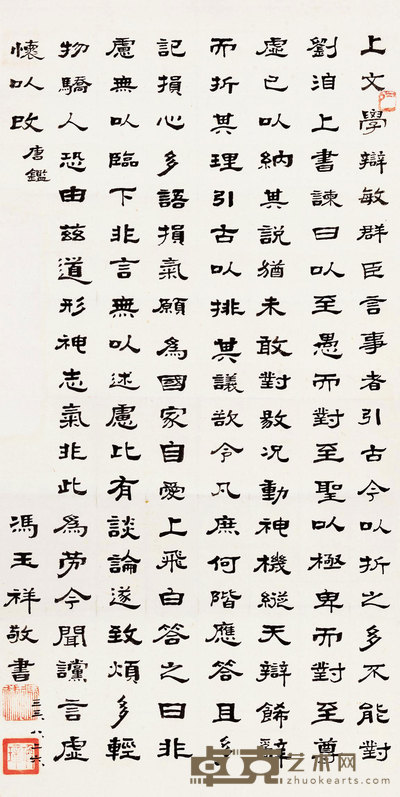 上文學辯敏群臣言事者引古今以折之多不能對
劉洎上書諫曰以至愚而對至聖以極卑而對至尊
虛己以納其說猶未敢對敭况動神機縱天辯餙辭
而折其理引古以排其議欲令凡庶何階應答且多
記損心多語損氣願為國家自愛上飛白答之曰非
慮無以臨下非言無以述慮比有談論遂致煩多輕
物驕人恐由茲道形神志氣非此為勞今聞讜言虛
懷以改
唐鑑
馮玉祥敬書
三三、八、十六、
艺术网
zhuokearts.com